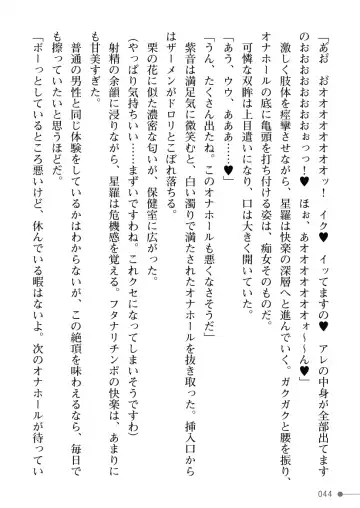 「あお　おオオオオオオオオッ！　イク♥　イッてますの♥　アレの中身が全部出てます
のおおおおおおおおぉっっ！♥　ほぉ、あオオオオオォォ～～ん♥」
　激しく肢体を痙攣させながら、星羅は快楽の深層へと進んでいく。ガクガクと腰を振り、
オナホールの底に亀頭を打ち付ける姿は、痴女そのものだ。
　可憐な双眸は上目遣いになり、口は大きく開いていた。
「あう、ウウ、あああ……♥」
「うん、たくさん出たね。このオナホールも悪くなさそうだ」
　紫音は満足気に微笑むと、白い濁りで満たされたオナホールを抜き取った。挿入口から
はザーメンがドロリとこぼれ落ちる。
　栗の花に似た濃密な匂いが、保健室に広がった。
（やっぱり気持ちいい……まずいですわね。これクセになってしまいそうですわ）
　射精の余韻に浸りながら、星羅は危機感を覚える。フタナリチンポの快楽は、あまりに
も甘美すぎた。
　普通の男性と同じ体験をしているかはわからないが、この絶頂を味わえるなら、毎日で
も擦っていたいと思うほどだ。
「ボーっとしているところ悪いけど、休んでいる暇はないよ。次のオナホールが待ってい
044